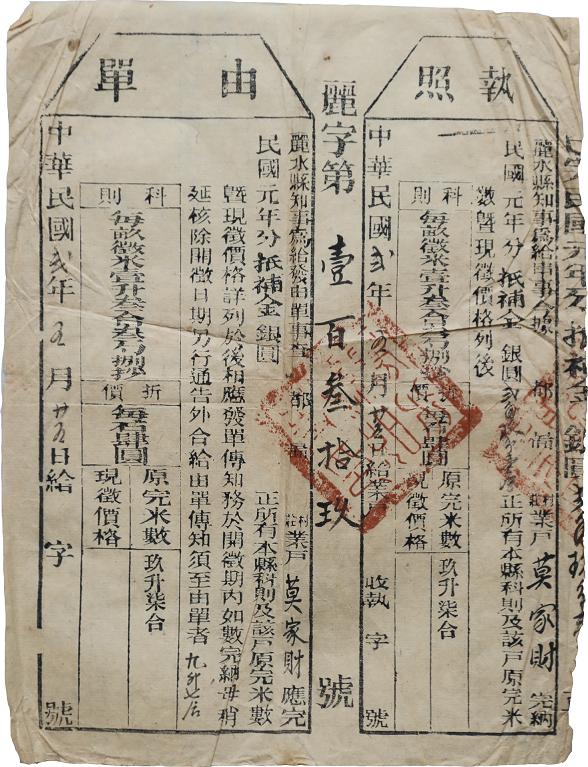 執照
麗水縣知事為給串事今據 都 圖 村莊業戶莫家財完納
民國元年分抵補金銀圓
正所有本縣科則及該戶原完米
數暨現徵價格列後
科則
每畝徵米壹升叁合
折價
每石肆圓
原完米數
玖升柒合
現徵價格
中華民國贰年五月廿五日給業戶 收執 字 號
麗字第壹百叁拾玖號
由單
麗水縣知事為給發由單事 都 圖 村莊業戶莫家財應完
民國元年分抵補金銀圓
正所有本縣科則及該戶原完米數
暨現徵價格詳列於後相應發單傳知務於開徵期內如數完納毋稍
延核除開徵日期另行通告外合給由單傳知須至由單者
科則
每畝徵米壹升叁合
折價
每石肆圓
原完米數
玖升柒合
現徵價格
中華民國贰年五月廿五日給 字 號